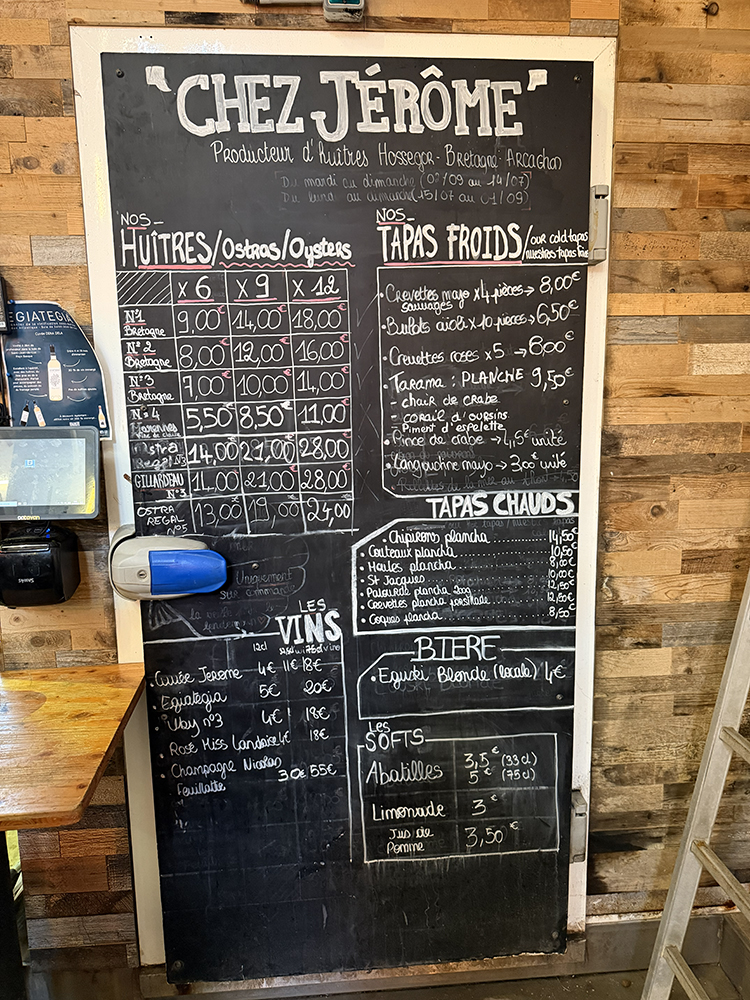 "CHEZ JÉRÔME"
Producteur d'huîtres Hossegor - Bretagne - Arcachon
Du mardi au dimanche (02/09 au 14/07)
Du lundi au dimanche (15/07 au 01/09)
NOS_
HUÎTRES/Ostras/Oysters
x 6 x 9 x 12
N°1 Bretagne 9,00€ 14,00€ 18,00€
N°2 Bretagne 8,00€ 12,00€ 16,00€
N°3 Bretagne 7,00€ 10,00€ 14,00€
N°4 Marennes 5,50€ 8,50€ 11,00€
Ostra Regal N°3 14,00€ 21,00€ 28,00€
GILLARDEAU N°3 14,00€ 21,00€ 28,00€
OSTRA REGAL N°5 13,00€ 19,00€ 24,00€
Uniquement
sur
LES
VINS
12cl
. Cuvée Jerome 4€ 11€ 18€
. Egiategia 5€ 20€
. Uby n°3 4€ 18€
. Rosé Miss Landaise 4€ 18€
. Champagne Nicolas
Feuillatte 30€ 55€
NOS_
TAPAS FROIDS/our cold tapas
nuestros tapas
. Crevettes mayo x4 pièces → 8,00€
sauvages
. Bulots aïoli x 10 pièces → 6,50€
. Crevettes roses x5 → 8,00€
. Tarama : PLANCHE 9,50€
- chair de crabe
- corail d'oursins
- Piment d'espelette
. Pince de crabe → unité
. Langoustine mayo → 3,00€ unité
TAPAS CHAUDS
. Chipirons plancha .......... 14,50€
. Couteaux plancha .......... 10,50€
. Moules plancha .......... 8,00€
. St Jacques .......... 10,00€
. Palourde plancha 200g .......... 12,50€
. Crevettes plancha persillade .......... 12,50€
. Coques plancha .......... 8,50€
BIERE
. Eguski Blonde (locale) 4€
Les
SOFTS
Abatilles 3,5€ (33cl)
5€ (75cl)
Limonade 3€
Jus de
Pomme 3,50€
EGIATEGIA